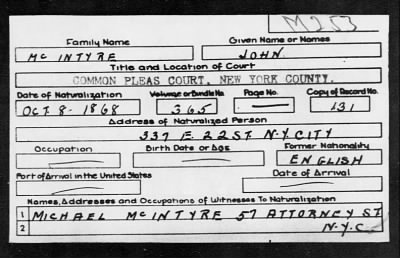 M253
Family Name Given Name or Names
Mc INTYRE JOHN
Title and Location of Court
COMMON PLEAS COURT, NEW YORK COUNTY.
Date of Naturalization Volume or Bundle No. Page No. Copy of Record No.
OCT. 8 - 1868 365 — 131
Address of Naturalized Person
337 E. 22 ST. N.Y. CITY
Occupation Birth Date or Age Former Nationality
ENGLISH
Port of Arrival in the United States Date of Arrival
Names, Addresses and Occupations of Witnesses To Naturalization
1 MICHAEL McINTYRE 57 ATTORNEY ST
2 N.Y.C.